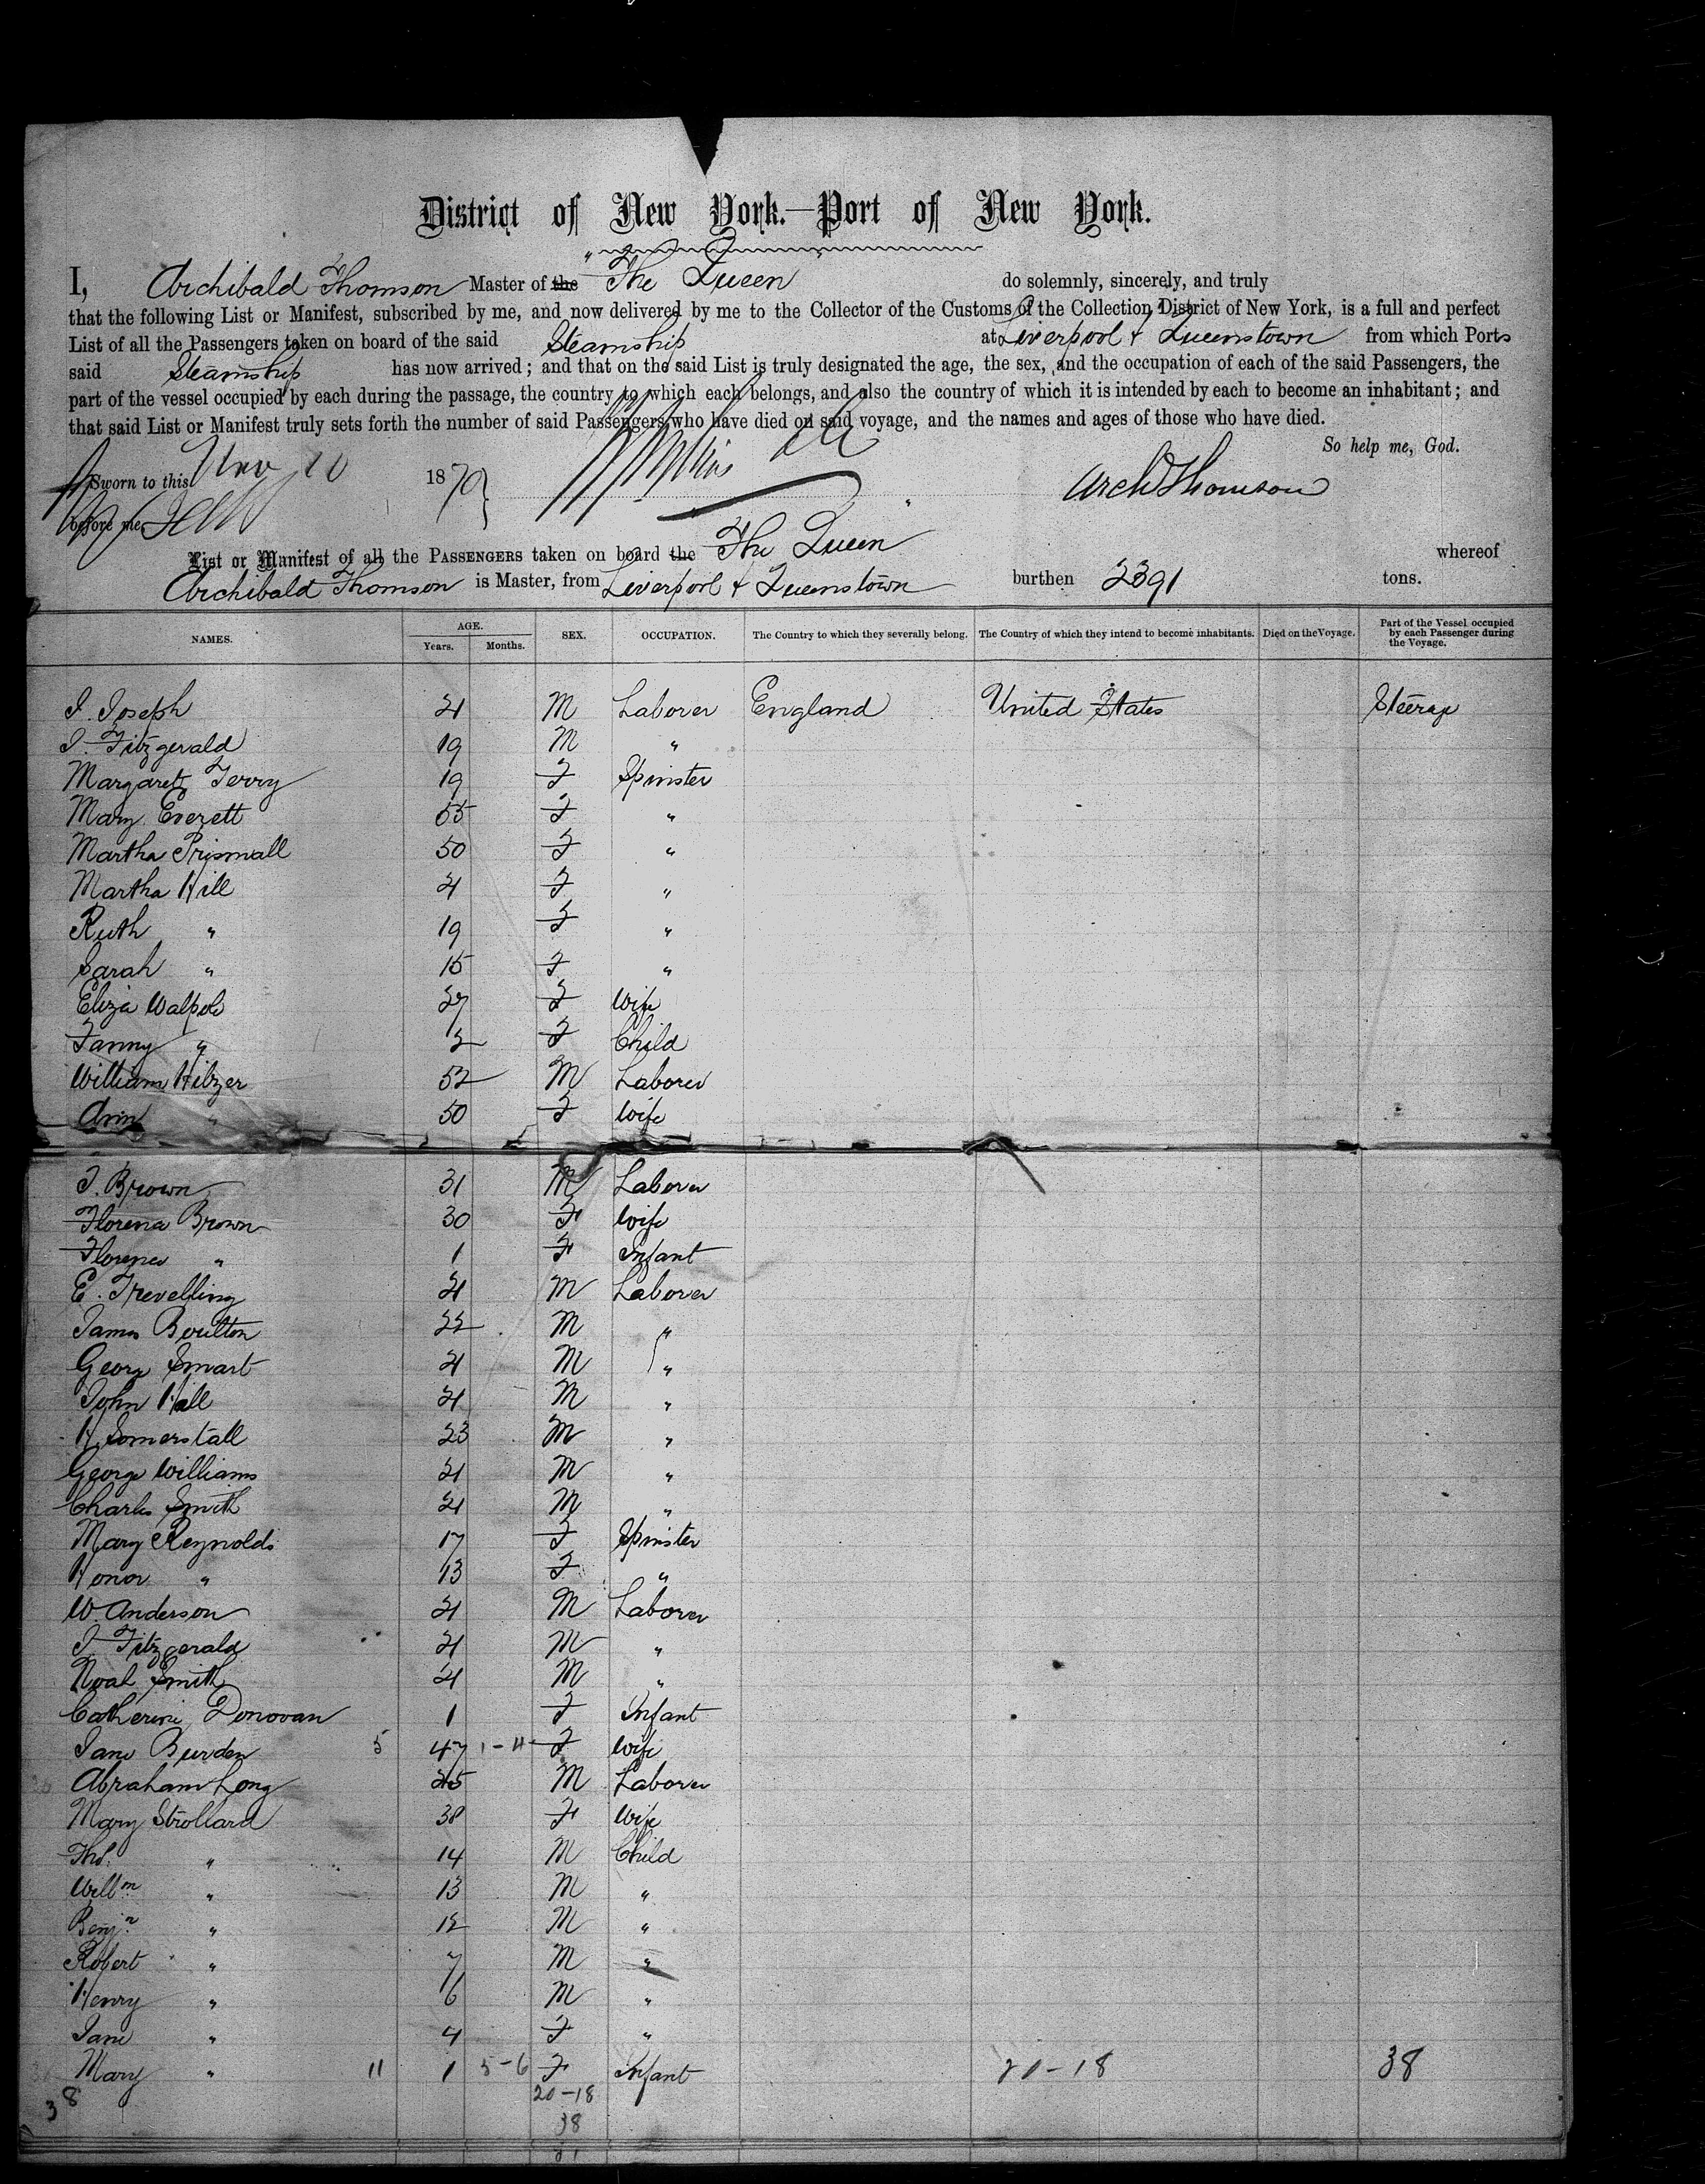 District of New York.—Port of New York.
I, Archibald Thomson Master of the "The Queen" do solemnly, sincerely, and truly
that the following List or Manifest, subscribed by me, and now delivered by me to the Collector of the Customs of the Collection District of New York, is a full and perfect
List of all the Passengers taken on board of the said Steamship at Liverpool & Queenstown from which Ports
said Steamship has now arrived; and that on the said List is truly designated the age, the sex, and the occupation of each of the said Passengers, the
part of the vessel occupied by each during the passage, the country to which each belongs, and also the country of which it is intended by each to become an inhabitant; and
that said List or Manifest truly sets forth the number of said Passengers who have died on said voyage, and the names and ages of those who have died.
So help me, God.
Sworn to this Nov 1870 Arch Thomson
before me
List or Manifest of all the PASSENGERS taken on board the "The Queen" whereof
Archibald Thomson is Master, from Liverpool & Queenstown burthen 2391 tons.
NAMES. AGE. Years. Months. SEX. OCCUPATION. The Country to which they severally belong. The Country of which they intend to become inhabitants. Died on the Voyage. Part of the Vessel occupied by each Passenger during the Voyage.
J. Joseph 21 M Laborer England United States Steerage
J. Fitzgerald 19 M "
Margaret Terry 19 F Spinster
Mary Everett 55 F "
Martha Prismall 50 F "
Martha Hill 21 F "
Ruth " 19 F "
Sarah " 15 F "
Eliza Walpole 27 F Wife
Fanny " 2 F Child
William Hilzer 52 M Laborer
Ann " 50 F Wife
J. Brown 31 M Laborer
Florena Brown 30 F Wife
Florence " 1 F Infant
E. Trevelling 21 M Laborer
James Boulton 22 M "
George Smart 21 M "
John Hall 21 M "
H. Somerstall 23 M "
George Williams 21 M "
Charles Smith 21 M "
Mary Reynolds 17 F Spinster
Honor " 13 F "
W. Anderson 21 M Laborer
J. Fitzgerald 21 M "
Noah Smith 21 M "
Catherine Donovan 1 F Infant
Jane Burden 5 47 1-4 F Wife
Abraham Long 45 M Laborer
Mary Strollard 38 F Wife
Thos. " 14 M Child
Willm " 13 M "
Benjn " 12 M "
Robert " 7 M "
Henry " 6 M "
Jane " 4 F "
Mary " 11 1 5-6 F Infant 20-18 38
38 20-18
38